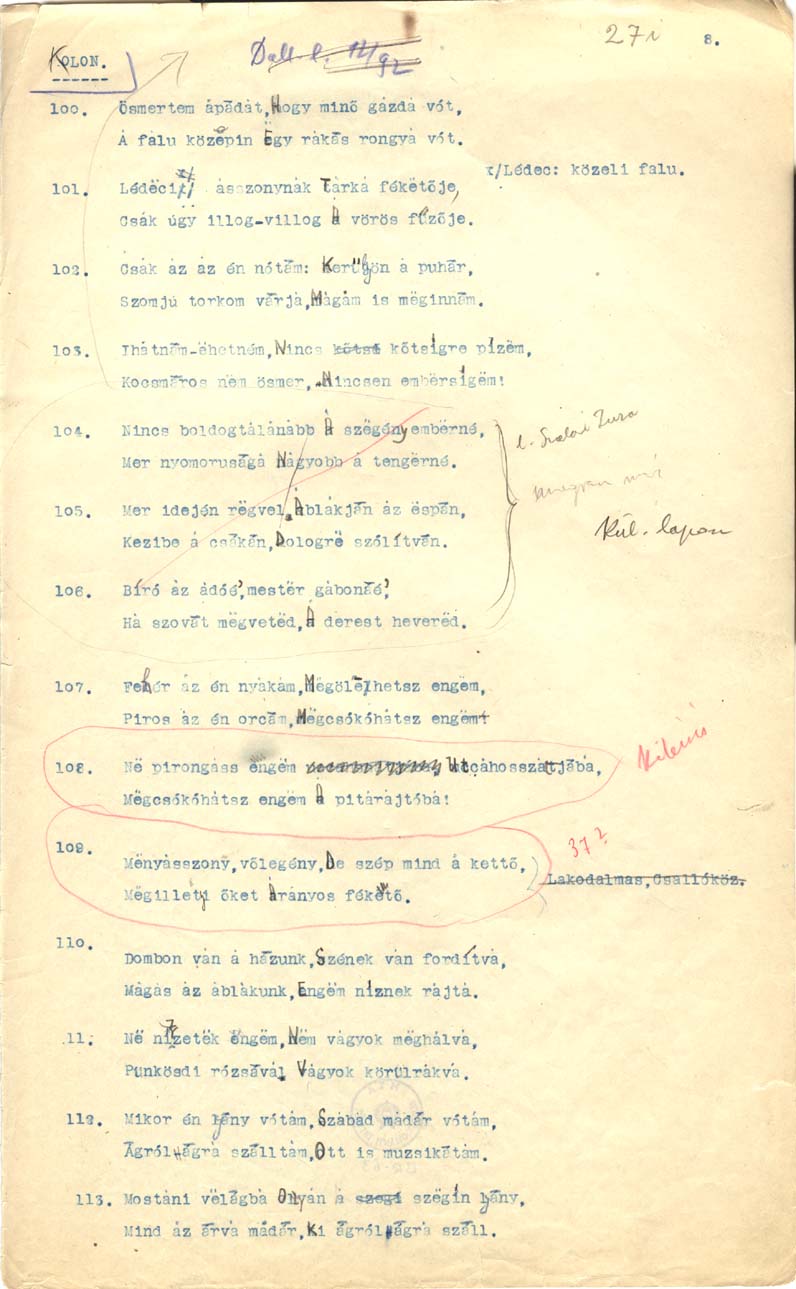 KOLON.
Dall. l. 12/92
27i
8.
100. Ösmertem ápádát, Hogy minő gázdá vót,
Á fálu közepin Ëgy rákás rongyá vót.
x/Lédec: közeli falu.
101. Lédëci x/ ásszonynák Tárká fékëtője,
Csák úgy illog-villog Á vörös fűzője.
102. Csák áz áz én nótám: Kerüljön á puhár,
Szomjú torkom várjá, Mágám is mëginnám.
103. Ihátnám-ëhetném, Nincs kőtsí kőtsígre pízëm,
Kocsmáros nëm ösmer, Nincsen embërsígëm!
104. Nincs boldogtálánább Á szëgény embërné,
Mer nyomoruságá Nágyobb á tengërné.
105. Mer idején rëgvel, Áblákján áz ëspán,
Kezibe á csákán, Dologrë szólítván.
106. Bíró áz ádóé', mestër gábonáé',
Há szovát mëgvetëd, Á derest heverëd.
Kül. lapon
107. Fehér áz én nyákám, Mëgölelhetsz engëm,
Piros áz én orcám, Mëgcsókóhátsz engëm
108. Në pirongáss ëngëm Utcáhosszátjábá,
Mëgcsókóhátsz engëm Á pitárájtóbá!
109. Mënyásszony, vőlegény, De szép mind á kettő,
Mëgilletyi őket Árányos fékëtő.
37?
Lakodalmas, Csallóköz.
110. Dombon ván á házunk, Szének ván fordítvá,
Mágás áz áblákunk, Engëm níznek rájtá.
11. Në nízetëk ëngëm, Nëm vágyok mëghálvá,
Pünkösdi rózsávál Vágyok körülrákvá.
112. Mikor én lyány vótám, Szábád mádár vótám,
Ágról ágrá szálltám, Ott is muzsikátám.
113. Mostáni vëlágbá Onyán á szegí szëgín lyány,
Mind áz árvá mádár, Ki ágról ágrá száll.